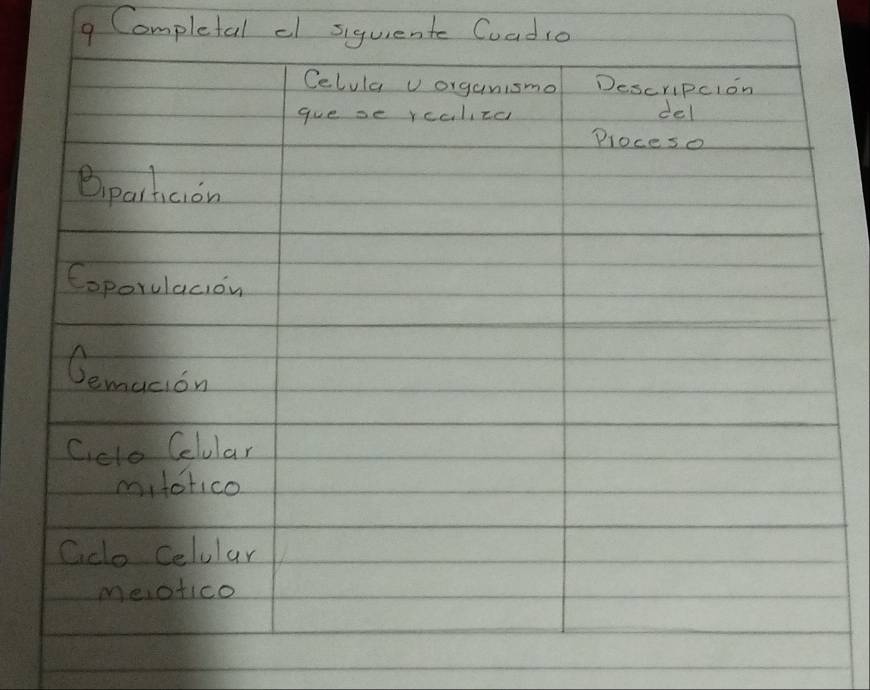 9 Completal el siguiente Cuadro
Celula u organismo
que se realiza
Descripción
del
Proceso
Bipartición
Esporulación
Gemación
Ciclo Celular
mitótico
Ciclo celular
meiotico